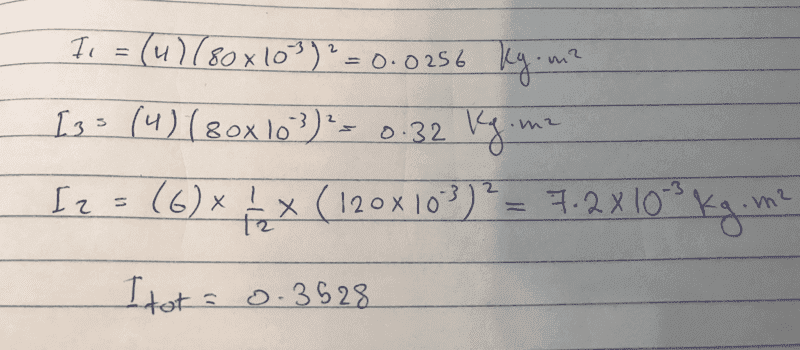 I₁ = (4)(80×10⁻³)² = 0.0256 kg·m²
I₃ = (4)(80×10⁻³)² = 0.32 kg·m²
I₂ = (6) × 1/12 × (120×10⁻³)² = 7.2×10⁻³ kg·m²
I tot = 0.3528